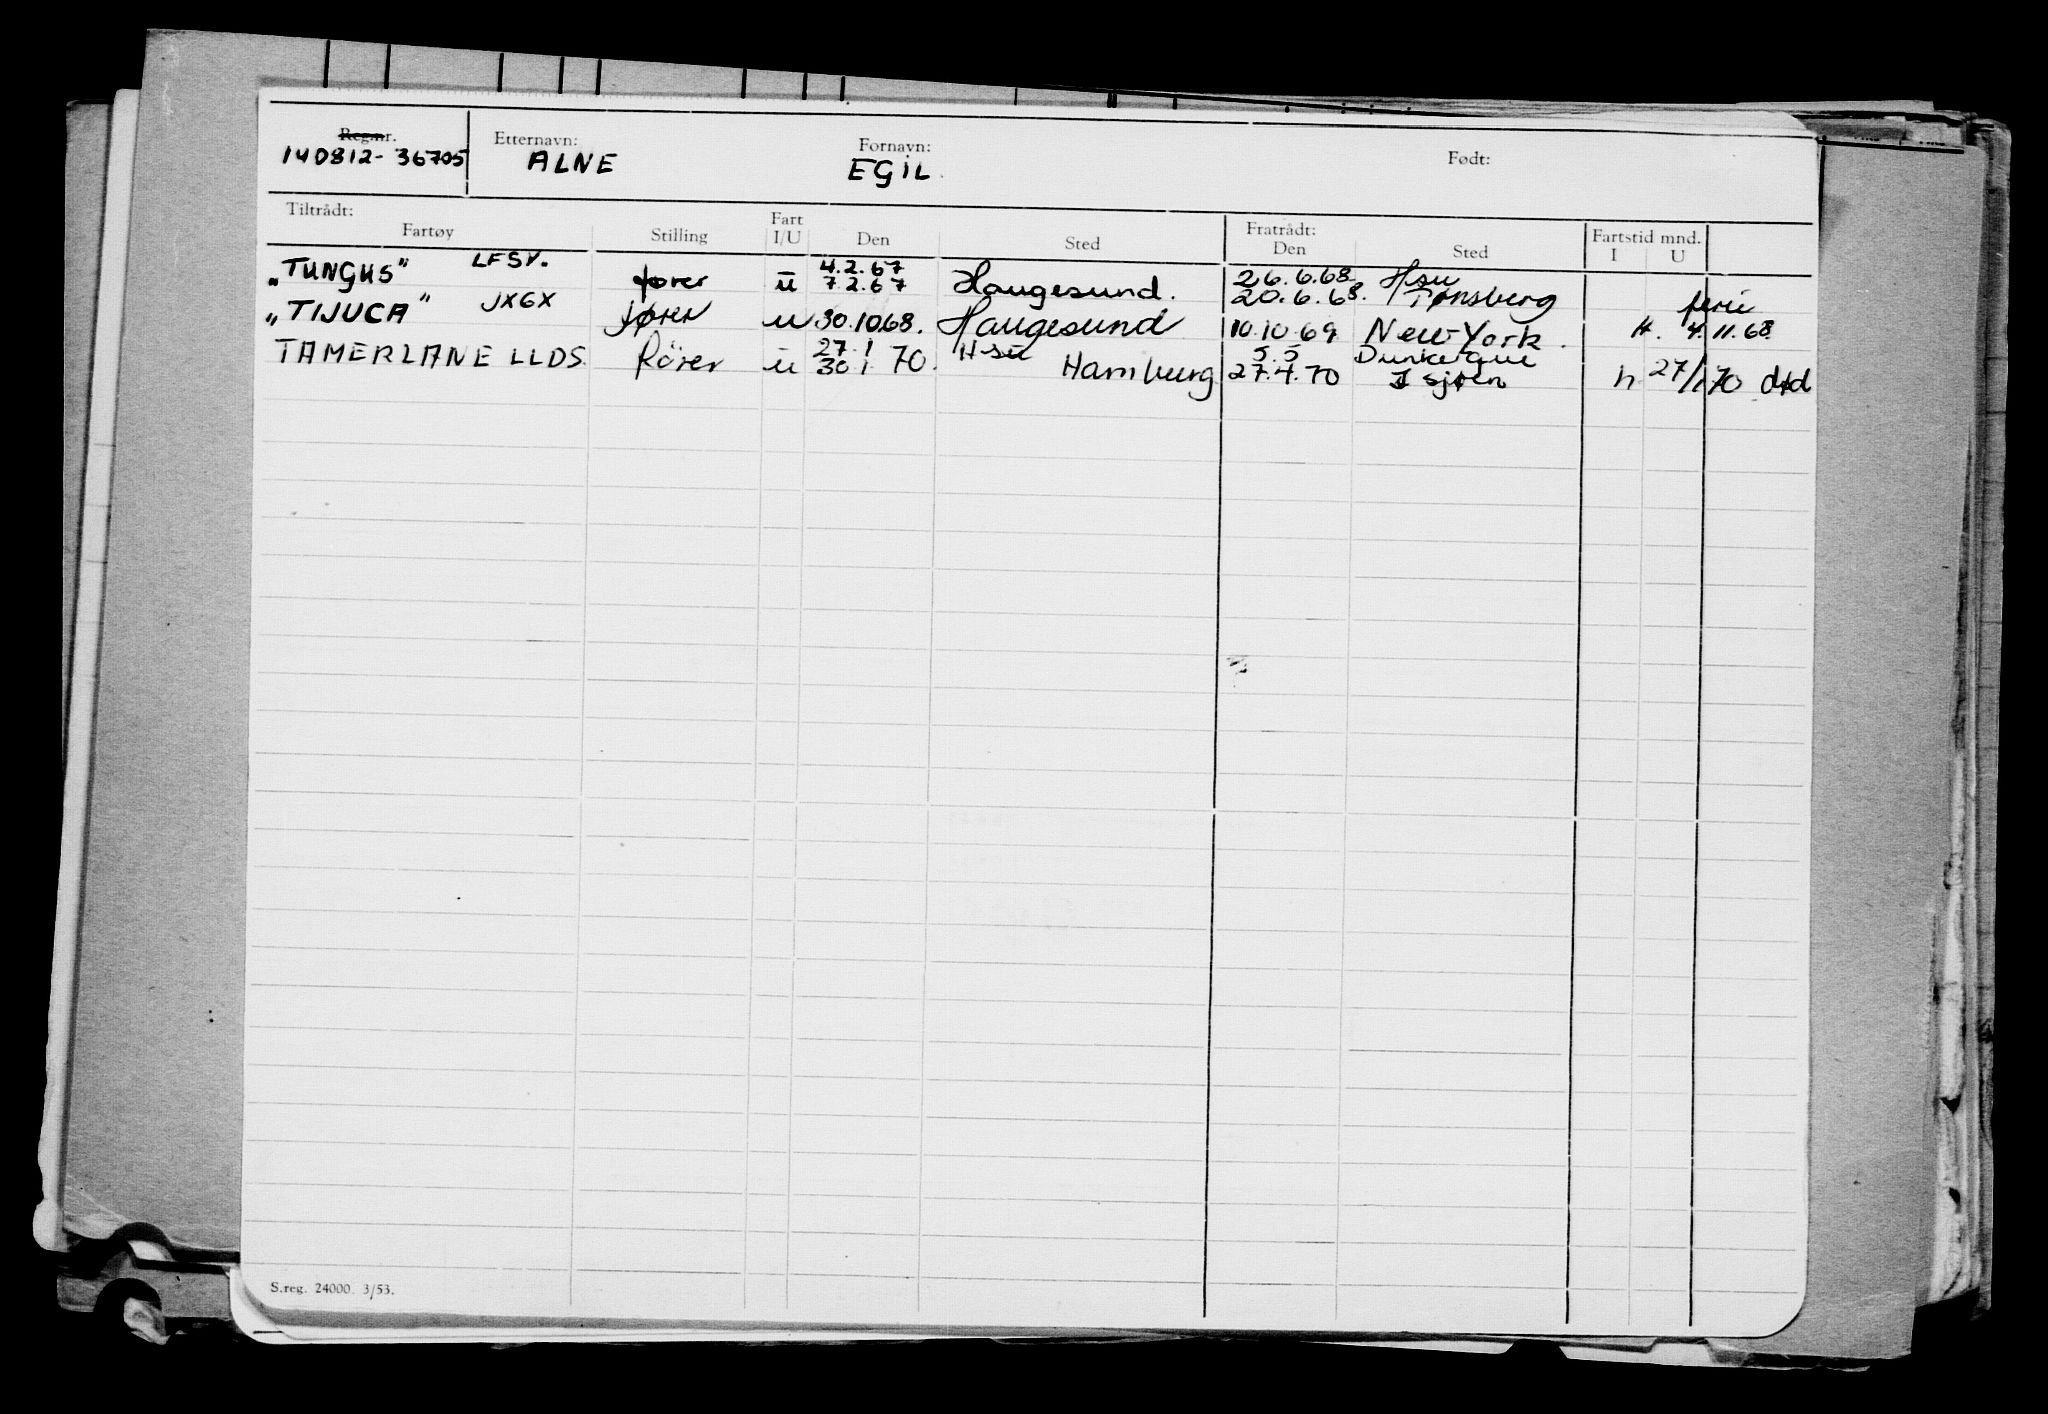 Reg.nr. Etternavn: Fornavn: Født:
140812-36705 ALNE EGIL
Tiltrådt: Fart Fratrådt: Fartstid mnd.
Fartøy Stilling I/U Den Sted Den Sted I U
"TUNGUS" LFSV. 4.2.67 26.6.68 Hsu
fører u 7.2.67 Haugesund. 20.6.68. Tønsberg ferie
"TIJUCA" JXGX fører u 30.10.68. Haugesund 10.10.69 New York. H. 4.11.68
27.1 H-su 5.5 Dunkerque
TAMERLANE LLDS. Förer u 30.1.70. Hamburg 27.4.70 I sjøen h 27/1.70 død
S.reg. 24000. 3/53.